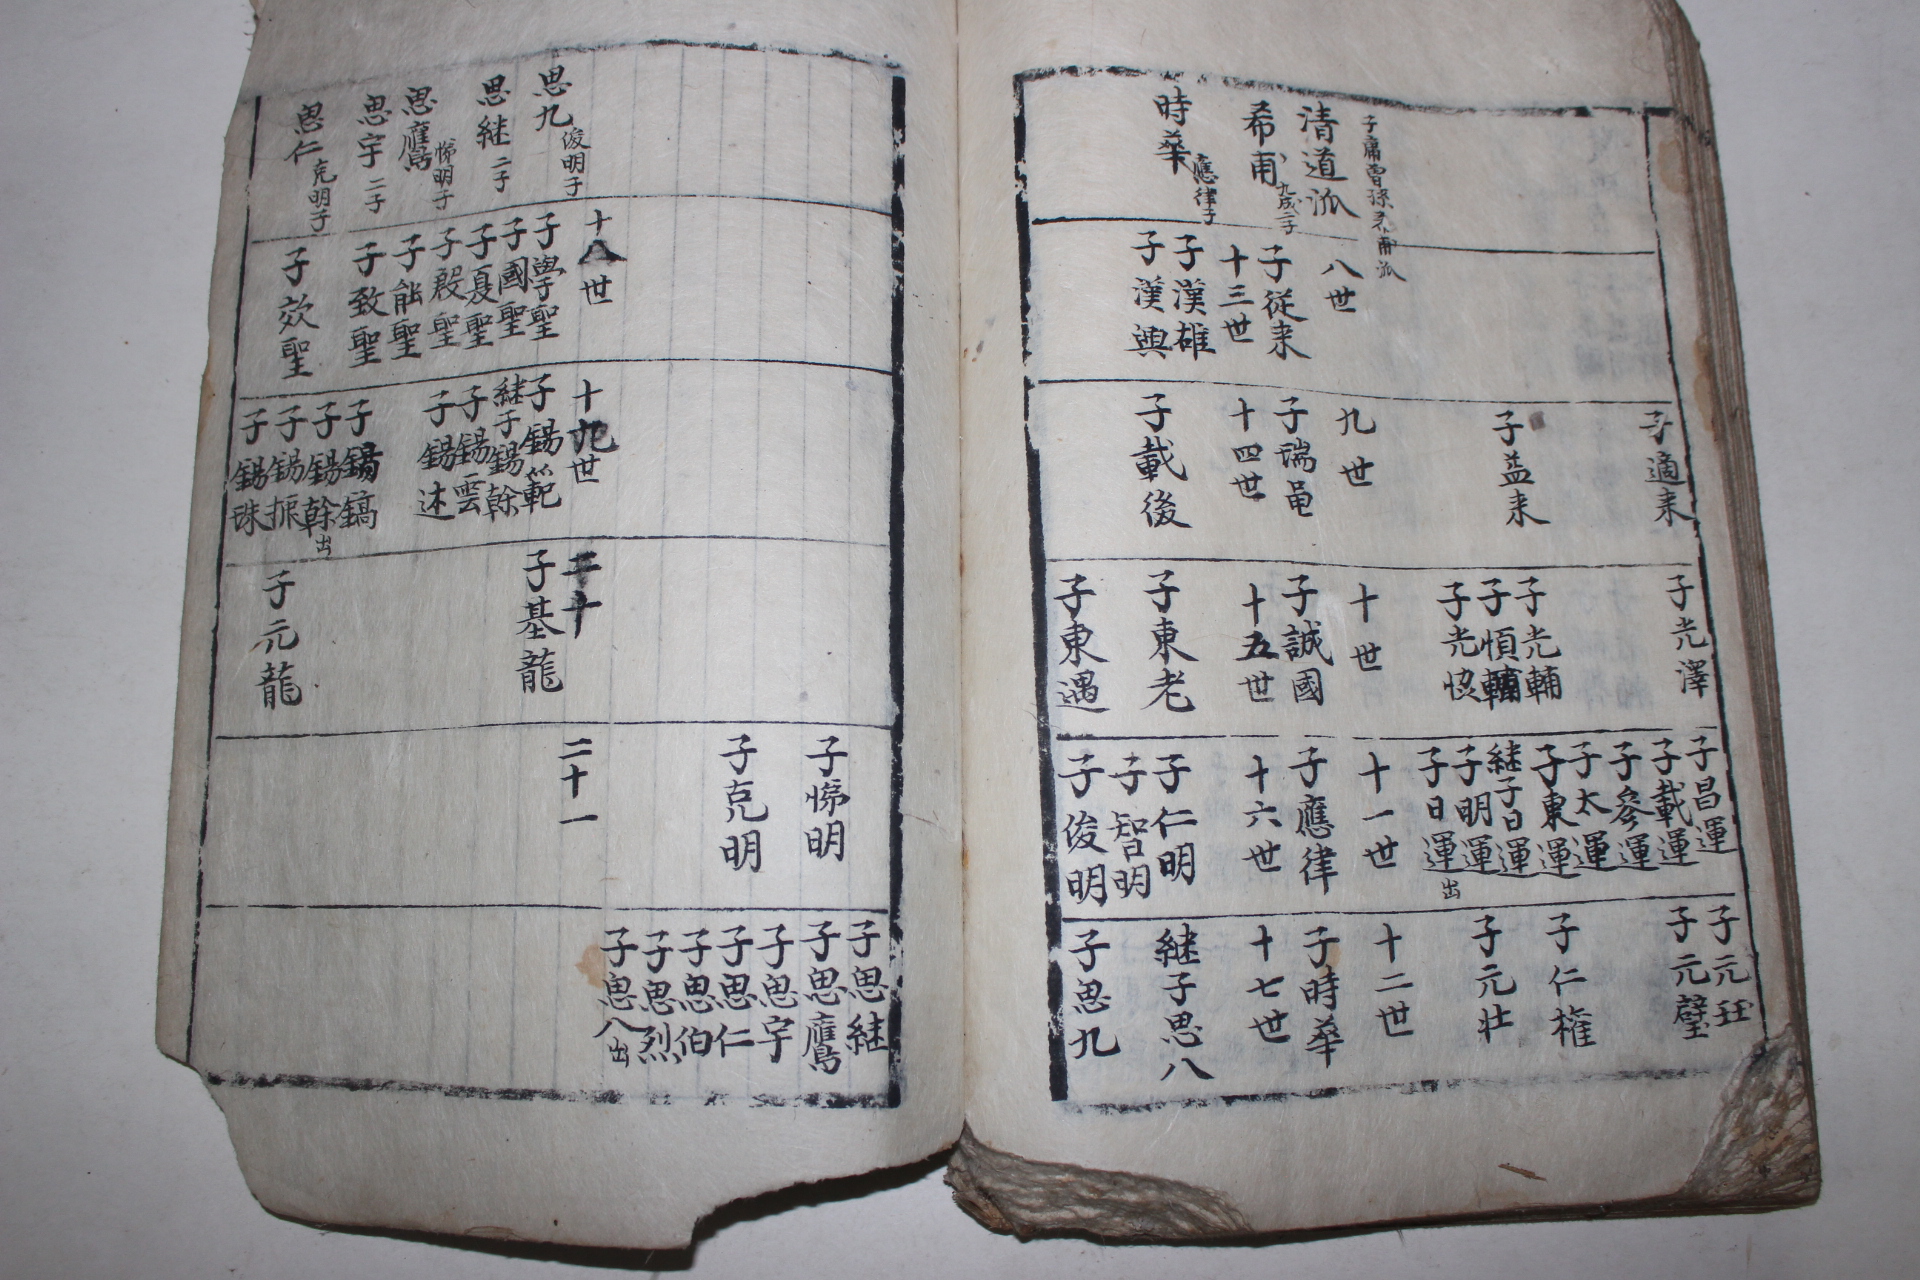 子適来
子光澤
子昌運
子載運
子參運
子元珏
子元璧
子益来
子光輔
子愼輔
子光
子太運
子東運
継子日運
子明運
子日運出
子仁権
子元壮
清道派
八世
九世
十世
十一世
十二世
希甫
九成二子
子従来
子瑞黽
子誠國
子應律
子時華
十三世
十四世
十五世
十六世
十七世
時華
應律子
子漢雄
子漢興
子載後
子東老
子東遇
子仁明
子智明
子俊明
継子思八
子思九
子悌明
子克明
子思継
子思鷹
子思宇
子思仁
子思伯
子思烈
子思八出
十八世
十九世
二十
二十一
思九
俊明子
子學聖
子錫範
子基龍
思継
二子
子國聖
継子錫幹
子夏聖
子錫雲
思鷹
悌明子
子殷聖
子錫述
子能聖
思宇
二子
子致聖
思仁
克明子
子效聖
子錫鎬
子錫幹出
子錫振
子錫珠
子元龍